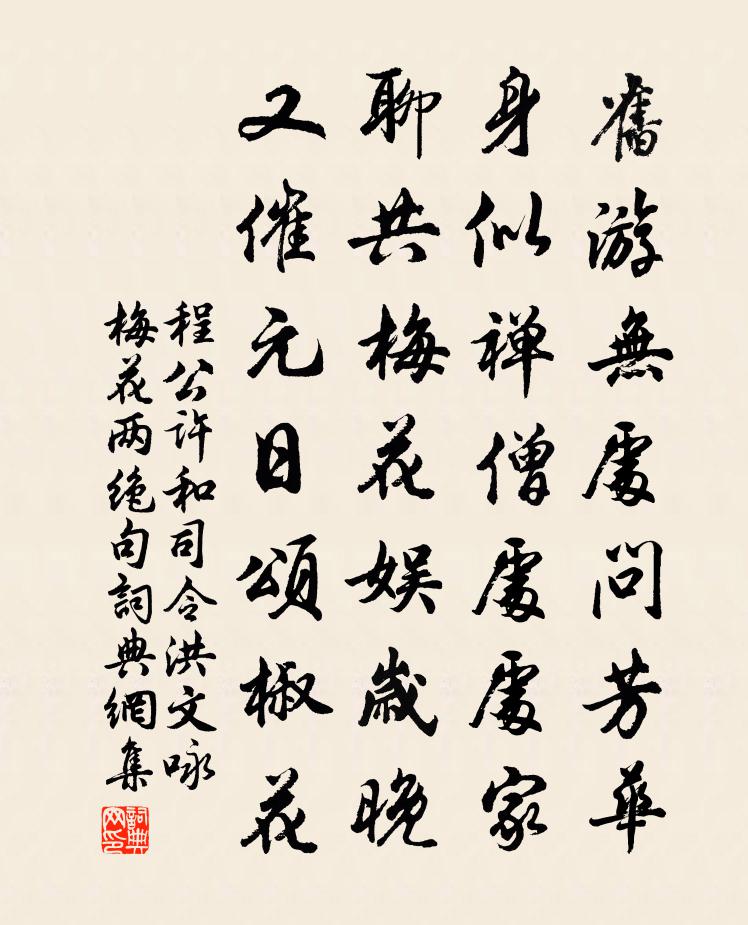 舊游無處問芳華
身似禅僧處處家
聊共梅花娱歲晚
又催元日頌椒花
程公许和司令洪文咏
梅花两绝句詞典網集
詞典
网印